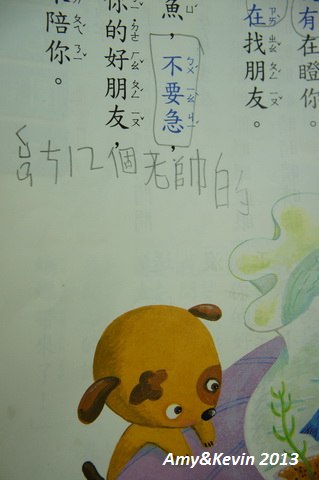 有在瞪你。
在找朋友。
魚，不要急，
你的好朋友，
陪你。
12個老師的
Amy&Kevin 2013